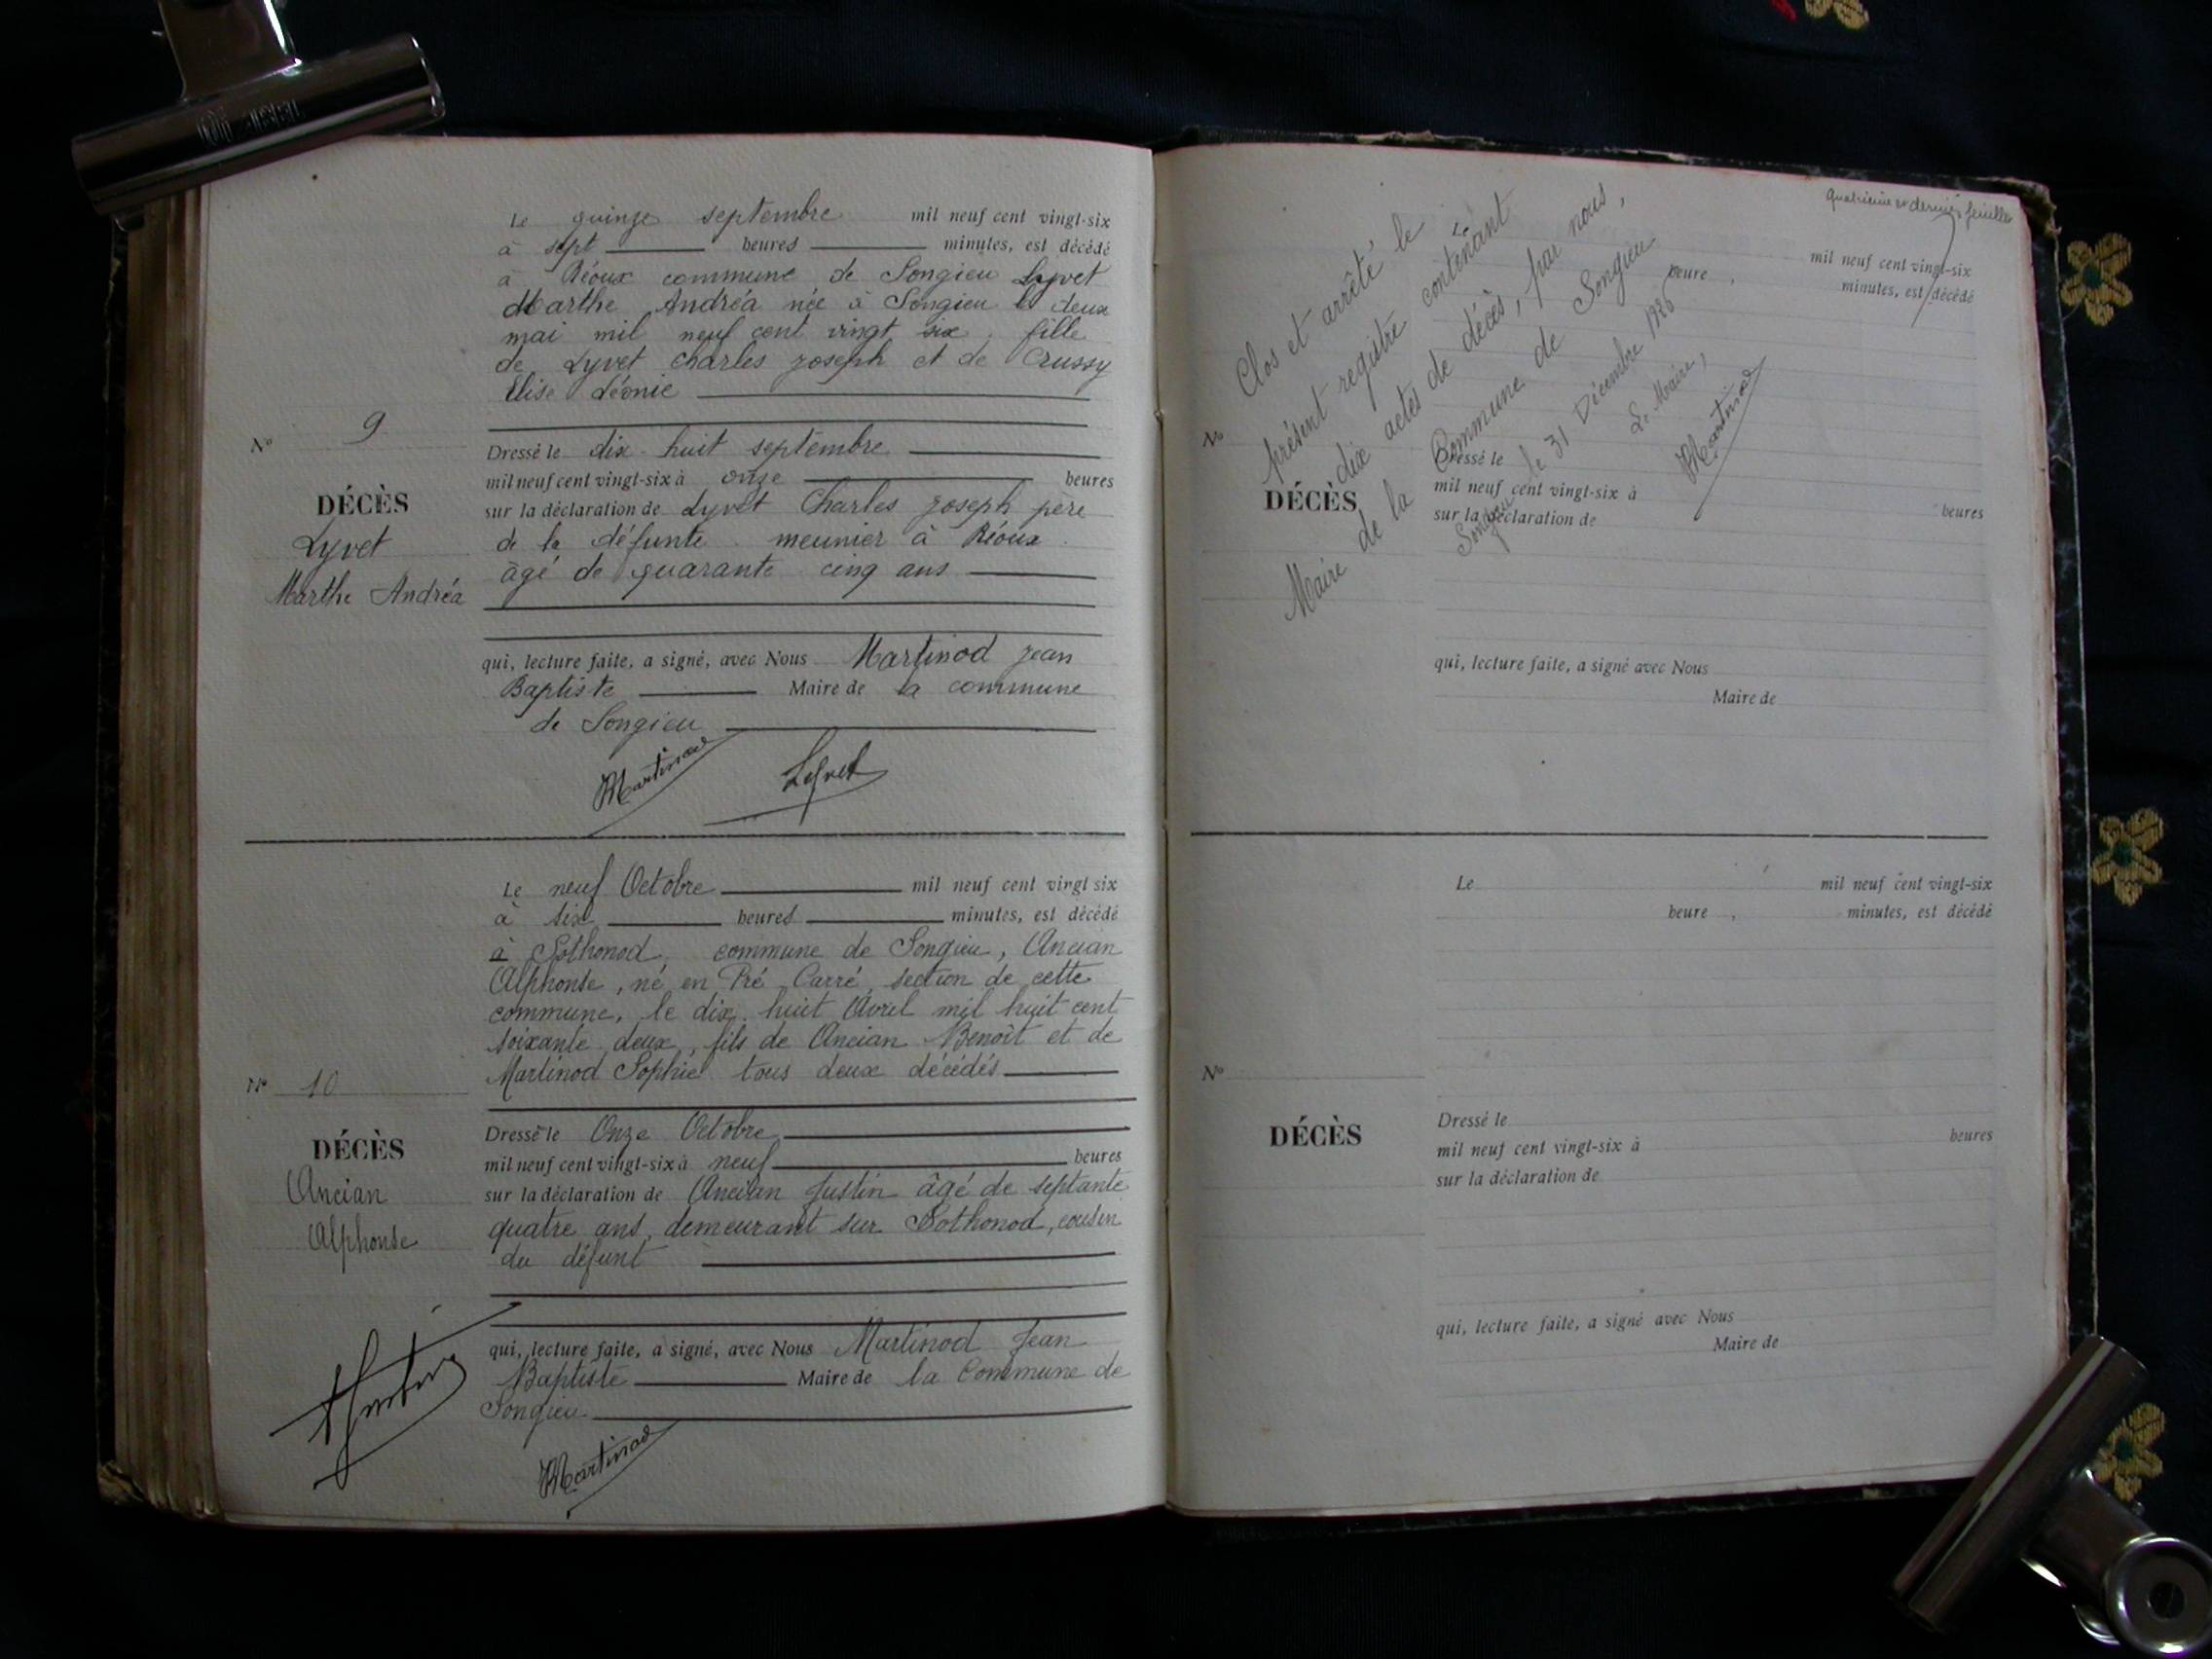 Le quinze septembre mil neuf cent vingt-six
à sept heures minutes, est décédé
à Réoux commune de Songieu Lyvet
Marthe Andréa née à Songieu le deux
mai mil neuf cent vingt six, fille
de Lyvet Charles Joseph et de Crussy
Elise Léonie
N° 9
Dressé le dix huit septembre
mil neuf cent vingt-six à onze heures
DÉCÈS
sur la déclaration de Lyvet Charles Joseph père
Lyvet
de la défunte meunier à Réoux
Marthe Andréa
âgé de quarante cinq ans
qui, lecture faite, a signé, avec Nous Martinod Jean
Baptiste Maire de la commune
de Songieu
Martinod
Lyvet
Le neuf Octobre mil neuf cent vingt six
à six heures minutes, est décédé
à Sothonod, commune de Songieu, Ancian
Alphonse, né en Pré Carré, section de cette
commune, le dix huit Avril mil huit cent
soixante deux, fils de Ancian Benoît et de
Martinod Sophie tous deux décédés
N° 10
Dressé le Onze Octobre
mil neuf cent vingt-six à neuf heures
DÉCÈS
Ancian
Alphonse
sur la déclaration de Ancian Justin âgé de septante
quatre ans, demeurant sur Sothonod, cousin
du défunt
qui, lecture faite, a signé, avec Nous Martinod Jean
Baptiste Maire de la Commune de
Songieu
Martinod
Quatrième et dernier feuillet
Clos et arrêté le
présent registre contenant
dix actes de décès, par nous,
Maire de la Commune de Songieu
Songieu le 31 Décembre 1926
Le Maire,
Martinod
Le mil neuf cent vingt-six
heure, minutes, est décédé
N°
DÉCÈS
Dressé le
mil neuf cent vingt-six à heures
sur la déclaration de
qui, lecture faite, a signé avec Nous
Maire de
Le mil neuf cent vingt-six
heure, minutes, est décédé
N°
DÉCÈS
Dressé le
mil neuf cent vingt-six à heures
sur la déclaration de
qui, lecture faite, a signé avec Nous
Maire de